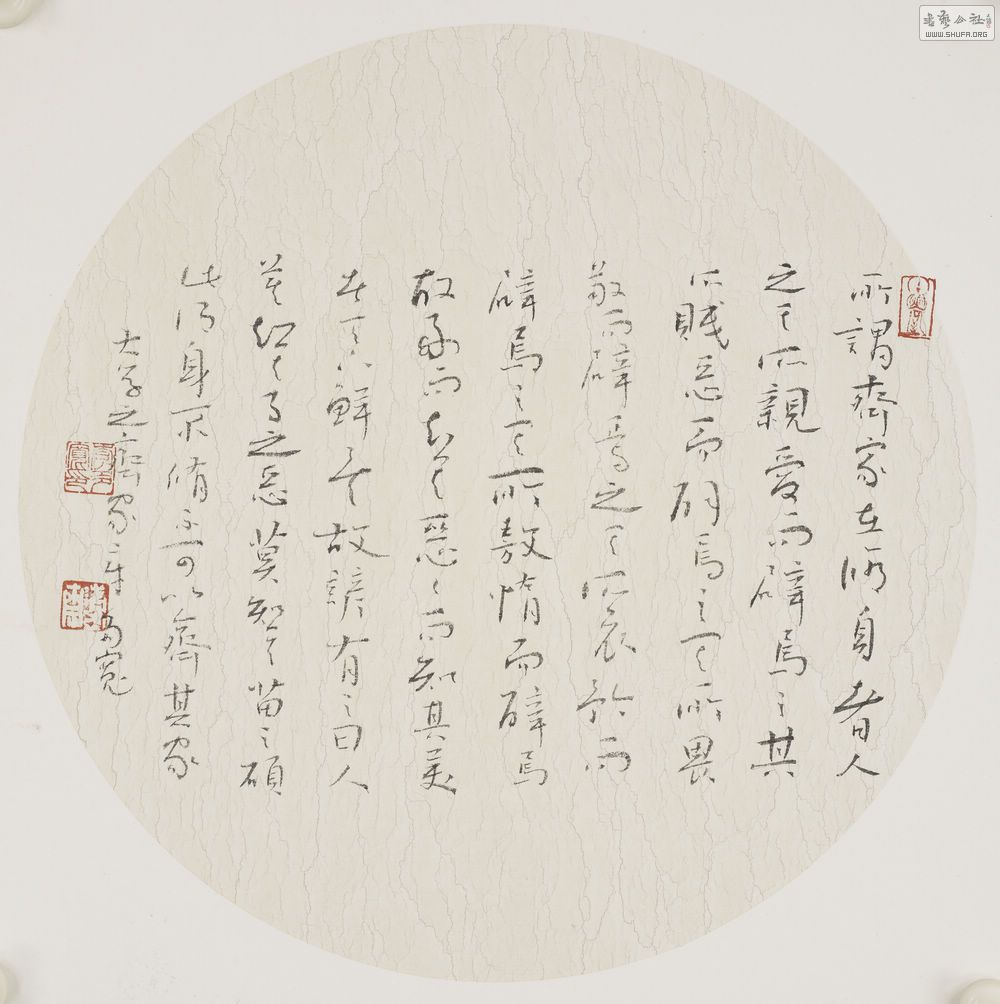 所謂齊家在脩身者人
之其所親愛而辟焉之其
所賤惡而辟焉之其所畏
敬而辟焉之其所哀矜而
辟焉之其所敖惰而辟焉
故好而知其惡惡而知其美
者天下鮮矣故諺有之曰人
莫知其子之惡莫知其苗之碩
此謂身不脩不可以齊其家
大學之齊家章
書藝公社
WWW.SHUFA.ORG